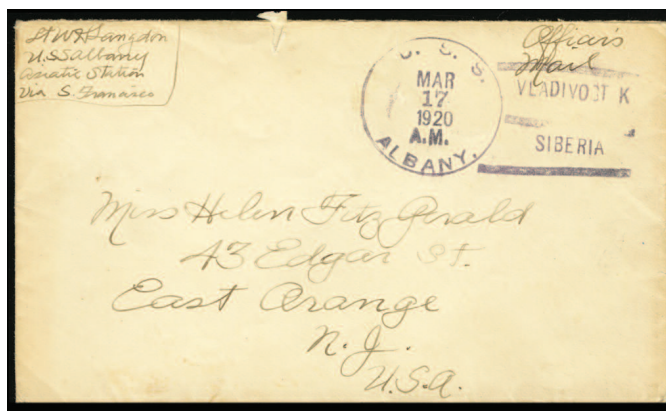 Lt W H Langdon
U.S.S Albany
Asiatic Station
Via S. Francisco
U. S. S.
MAR
17
1920
A.M.
ALBANY.
Officer's
Mail
VLADIVOST K
SIBERIA
Miss Helen Fitz Gerald
43 Edgar St.
East Orange
N. J.
U.S.A.